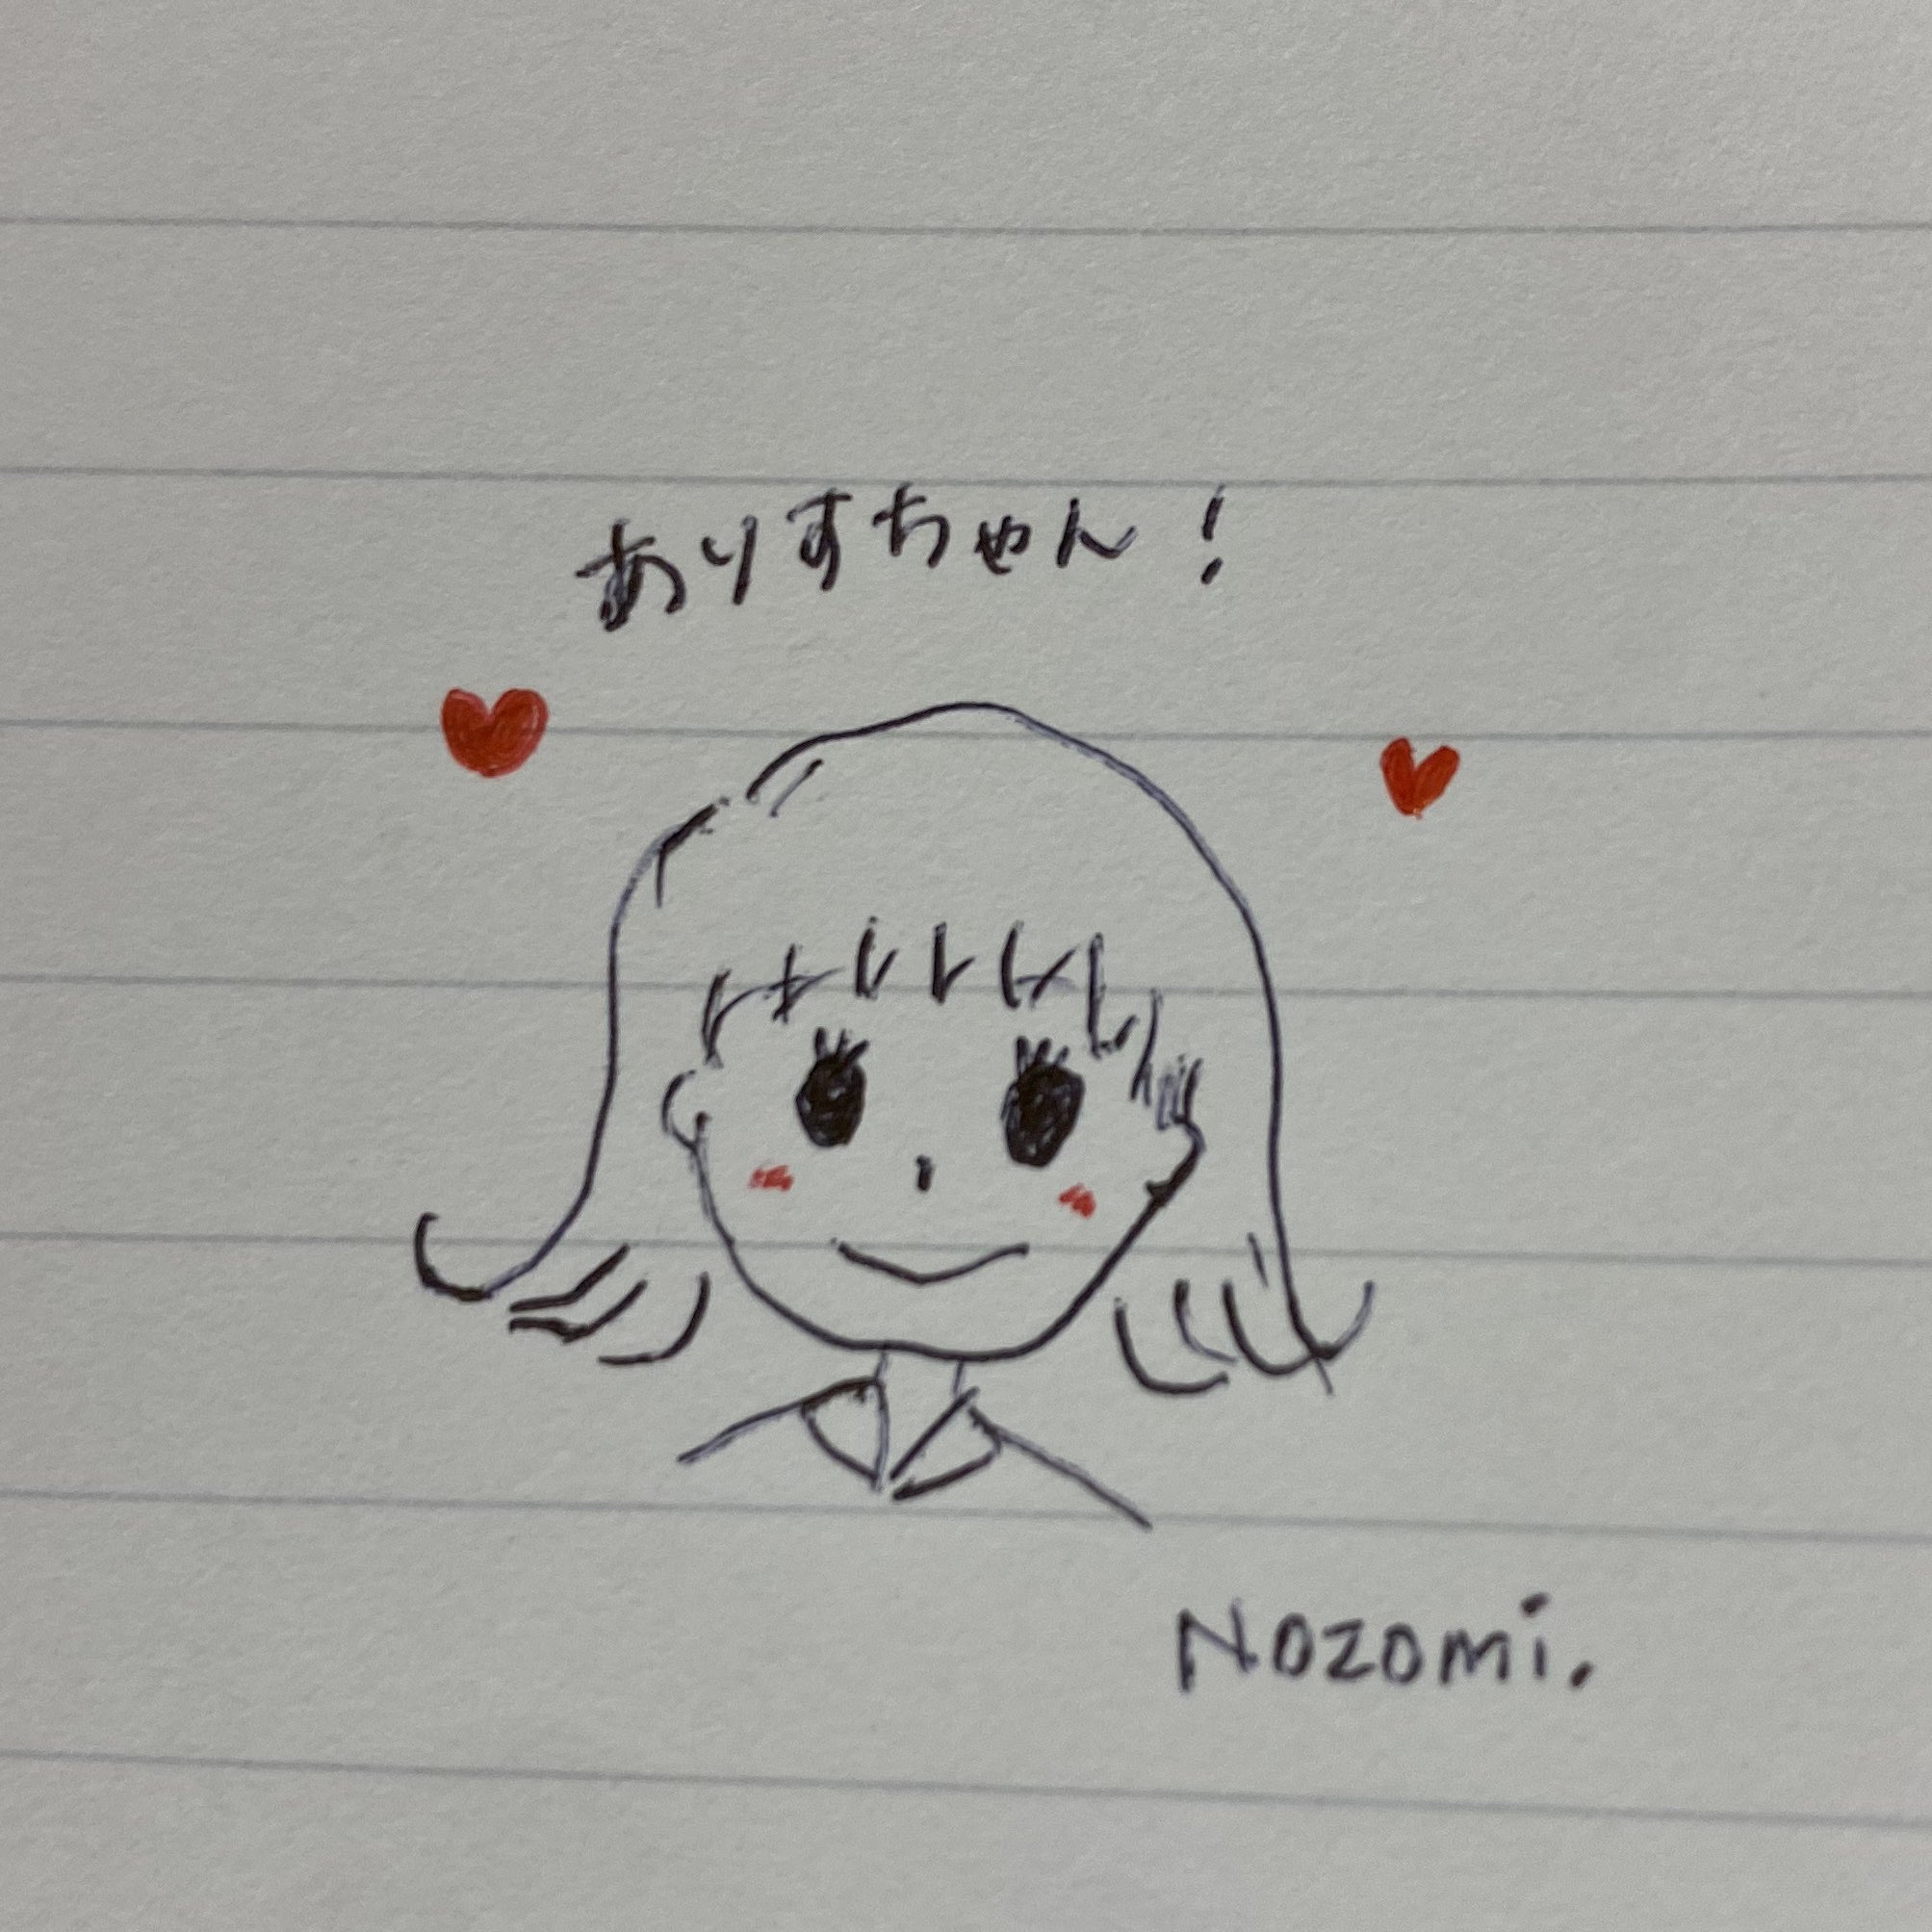 ありすちゃん!
Nozomi.